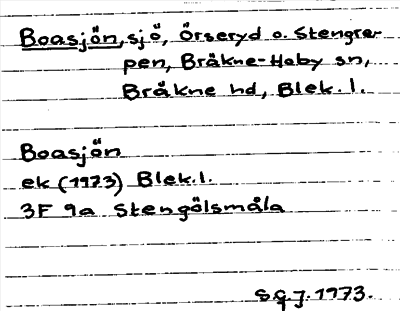 Boasjön, sjö, Örseryd o. Stengrer-
pen, Bräkne-Hoby sn,
Bräkne hd, Blek. l.
Boasjön
ek (1973) Blek. l.
3F 9a Stengölsmåla
S.G.J. 1973.